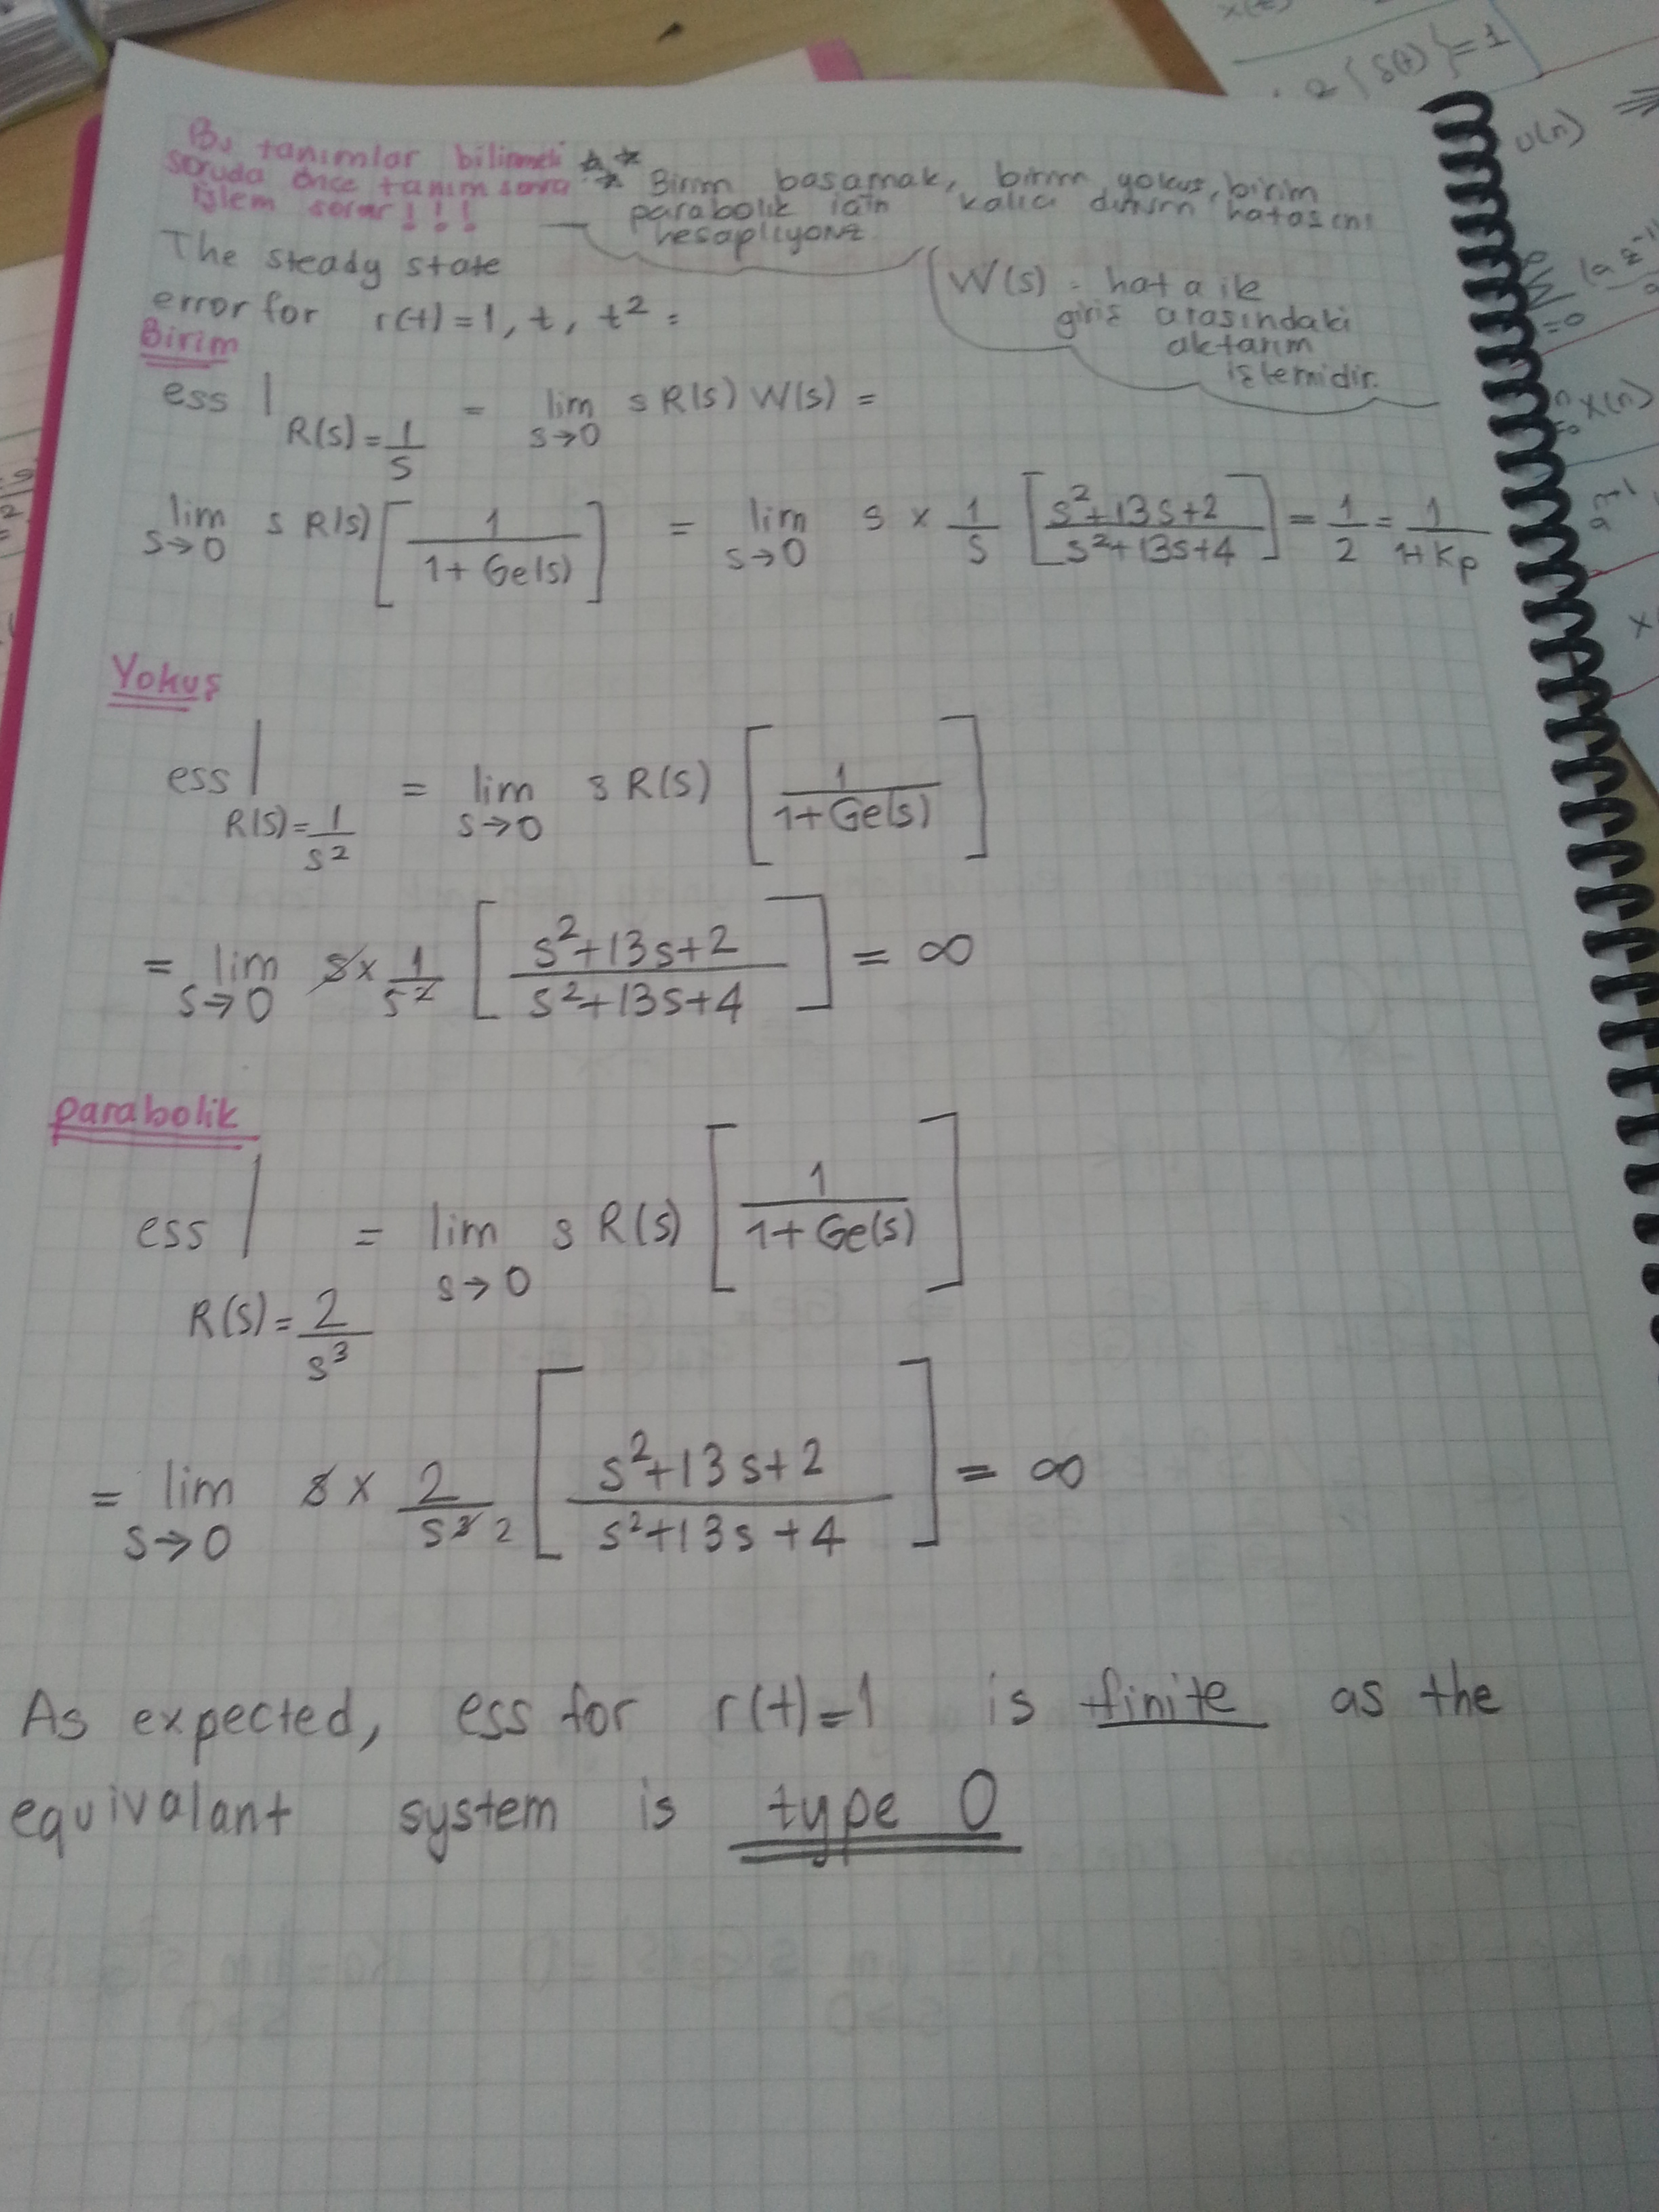 Bu tanımlar bilinmeli
soruda önce tanım sonra
işlem sorar!!!
Birim basamak, birim yokuş, birim
parabolik için kalıcı durum hatasını
hesaplıyoruz
The steady state
error for r(t)=1, t, t² =
W(s) = hata ile
giriş arasındaki
aktarım
işlemidir.
Birim
ess | R(s)=1/s = lim s→0 s R(s) W(s) =
lim s→0 s R(s) [1/(1+Ge(s))] = lim s→0 s x 1/s [(s²+13s+2)/(s²+13s+4)] = 1/2 = 1/(1+Kp)
Yokuş
ess | R(s)=1/s² = lim s→0 s R(s) [1/(1+Ge(s))]
= lim s→0 s x 1/s² [(s²+13s+2)/(s²+13s+4)] = ∞
parabolik
ess | R(s)=2/s³ = lim s→0 s R(s) [1/(1+Ge(s))]
= lim s→0 s x 2/s³ 2 [(s²+13s+2)/(s²+13s+4)] = ∞
As expected, ess for r(t)=1 is finite as the
equivalant system is type 0
{δ(t)}=1
u(n)
x(n)